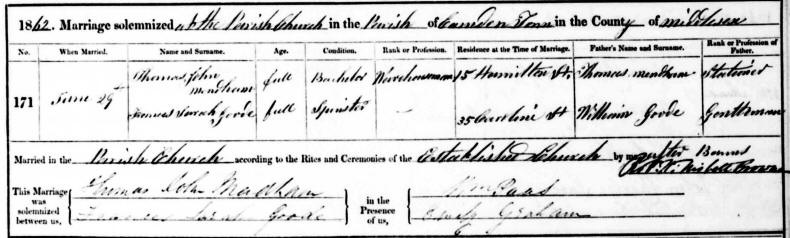 1862. Marriage solemnized at the Parish Church in the Parish of Camden Town in the County of Middlesex
No. When Married. Name and Surname. Age. Condition. Rank or Profession. Residence at the Time of Marriage. Father's Name and Surname. Rank or Profession of Father.
171 June 29th Thomas John Mendham full Bachelor Warehouseman 15 Hamilton St. Thomas Mendham Stationer
Frances Sarah Goode full Spinster — 35 Caroline St William Goode Gentleman
Married in the Parish Church according to the Rites and Ceremonies of the Established Church by me, after Banns
Nisbett Browne
This Marriage was solemnized between us, Thomas John Mendham in the Presence of us, Wm Paas
Frances Sarah Goode Graham